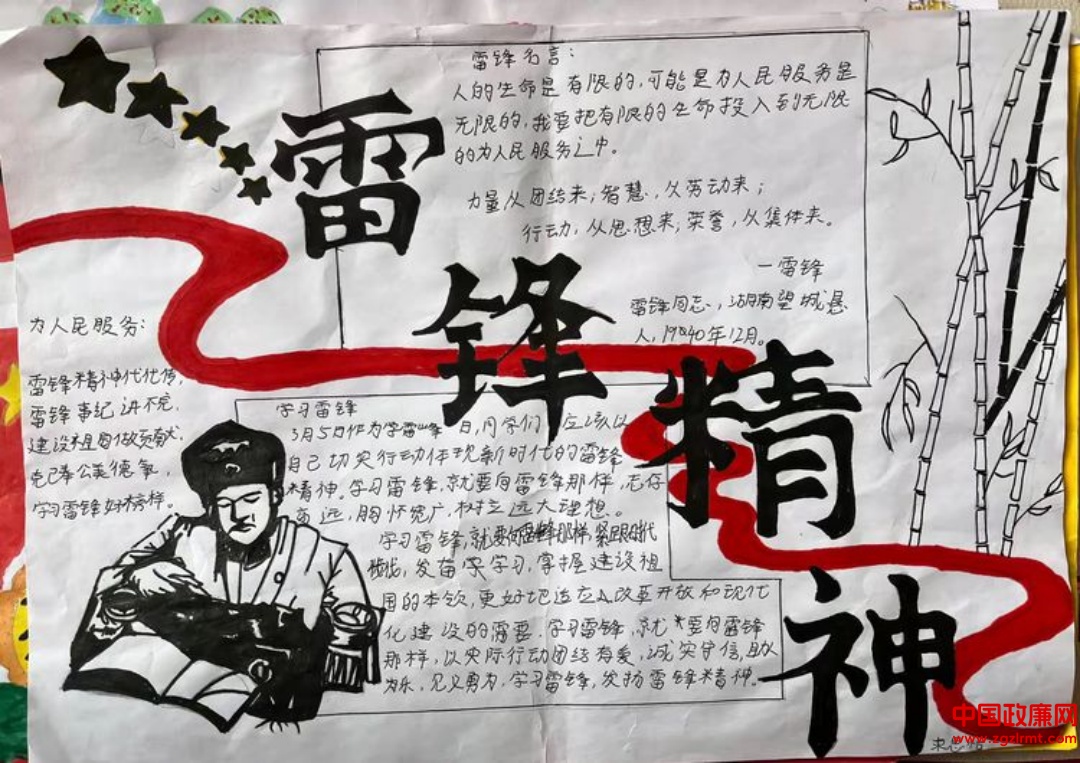 雷锋精神
雷锋名言：
人的生命是有限的，可能是为人民服务是
无限的，我要把有限的生命投入到无限
的为人民服务之中。
力量从团结来；智慧，从劳动来；
行动，从思想来；荣誉，从集体来。
一雷锋
雷锋同志，湖南望城县
人，1940年12月。
为人民服务：
雷锋精神代代传，
雷锋事纪讲不完，
建设祖国做贡献，
克己奉公美德
学习雷锋好榜样。
学习雷锋
3月5日作为学雷锋日，同学们应该以
自己切实行动体现新时代的雷锋
精神。学习雷锋，就要向雷锋那样，志存
高远，胸怀宽广，树立远大理想。
学习雷锋，就要向雷锋那样，紧跟时代
发奋学习，掌握建设祖
国的本领，更好地适应改革开放和现代
化建设的需要，学习雷锋，就要向雷锋
那样，以实际行动团结有爱，诚实守信，助人
为乐，见义勇为，学习雷锋，发扬雷锋精神。
中国政廉网
www.zgzlrmt.com